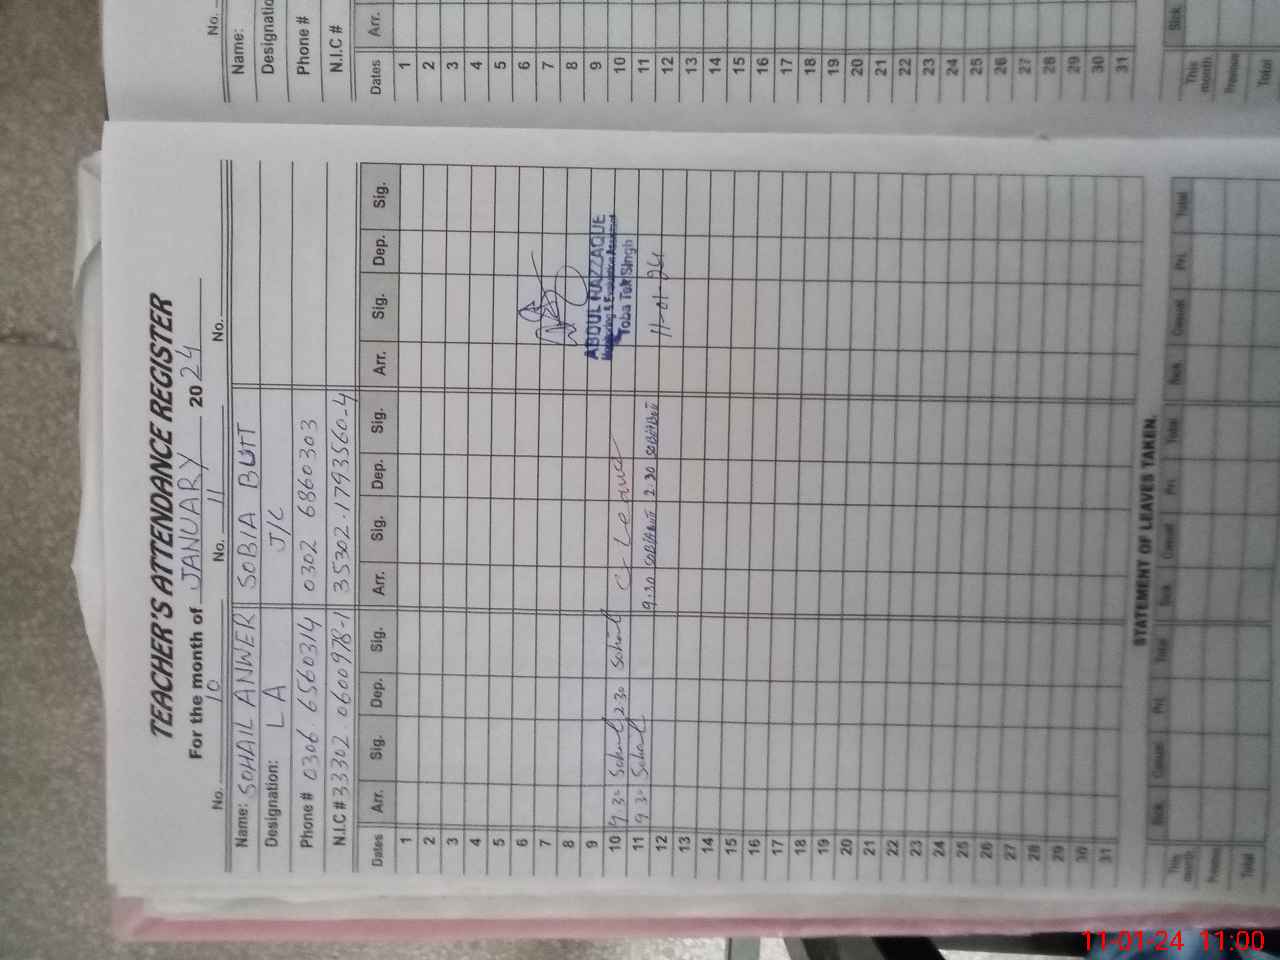 No.
Name:
Designatio
Phone #
N.I.C #
Dates Arr.
1
2
3
4
5
6
7
8
9
10
11
12
13
14
15
16
17
18
19
20
21
22
23
24
25
26
27
28
29
30
31
Sick
This month
Previous
Total
TEACHER'S ATTENDANCE REGISTER
For the month of JANUARY 2024
No. 10 No. 11 No.
Name: SOHAIL ANWER SOBIA BUTT
Designation: LA J/C
Phone # 0306 6560314 0302 6860303
N.I.C # 33302 0600978-1 35302.1793560-4
Dates Arr. Sig. Dep. Sig. Arr. Sig. Dep. Sig. Arr. Sig. Dep. Sig.
1
2
3
4
5
6
7
8
9
10 9.30 Sohail 2.30 Sohail C/Leave
11 9.30 Sohail 9.30 SOBIABUTT 2.30 SOBIABUTT
12
13
14
15
16
17
18
19
20
21
22
23
24
25
26
27
28
29
30
31
ABDUL RAZZAQUE
Monitoring & Evaluation Assistant
Toba Tek Singh
11-01-24
STATEMENT OF LEAVES TAKEN.
Sick Casual Pri. Total Sick Casual Pri. Total Sick Casual Pri. Total
This month
Previous
Total
11-01-24 11:00